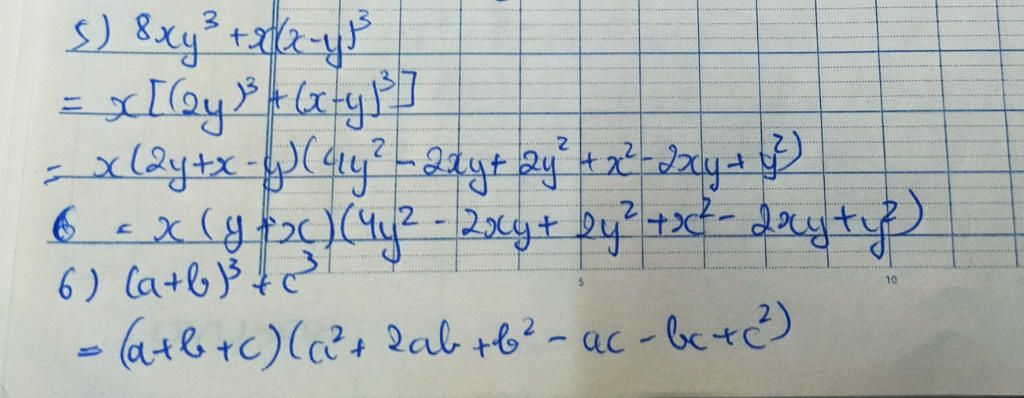 5) 8xy³ + x(x-y)³
= x[(2y)³ + (x-y)³]
= x(2y+x-y)(4y² - 2xy + 2y² + x² - 2xy + y²)
6 = x(y+x)(4y² - 2xy + 2y² + x² - 2xy + y²)
6) (a+b)³ + c³
5 10
= (a+b+c)(a² + 2ab + b² - ac - bc + c²)